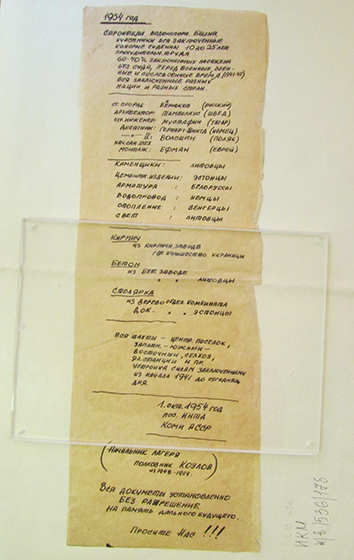 1954 год
строители водонапорн. башни,
участники все заключенные
которые судимы 10 до 25 лет
принудител. труда
60-70% заключенных
без суда, перед военные воен-
ные и послевоенное время (1947-48)
все заключенные разных
наций и разных стран.
ст. прораб Бериков (русский)
архитектор Тамвелиус (швед)
гл. инженер: Мустафин (татар)
десятник: Герберт (немец)
—"— II: Волошин (поляк)
монтаж: Ефман (еврей)
Каменщики: литовцы
Цементн. изделия: эстонцы
арматура: белоруссы
водопровод: немцы
отопление: венгерцы
свет: литовцы
Кирпич
из кирпичн. завода
где большинство украинцы
Бетон
из бет. завода
" " литовцы
Столярка
из деревоотдел. комбината
ДОК. " " эстонцы
Все шахты — центр. поселок,
западн. — южный —
восточный, сельхоз,
эл. станции и пр.
усердия силам заключенными
из начала 1941 до сегодняшн.
дня.
1. окт. 1954 год
пос. Инта
Коми АССР
(Начальник лагеря
полковник Козлов
из 1948-1954.)
Все документы установленно
без разрешение
на память дальнего будущего.
Просите Нас !!!
ИКМ
НВ 1536/176